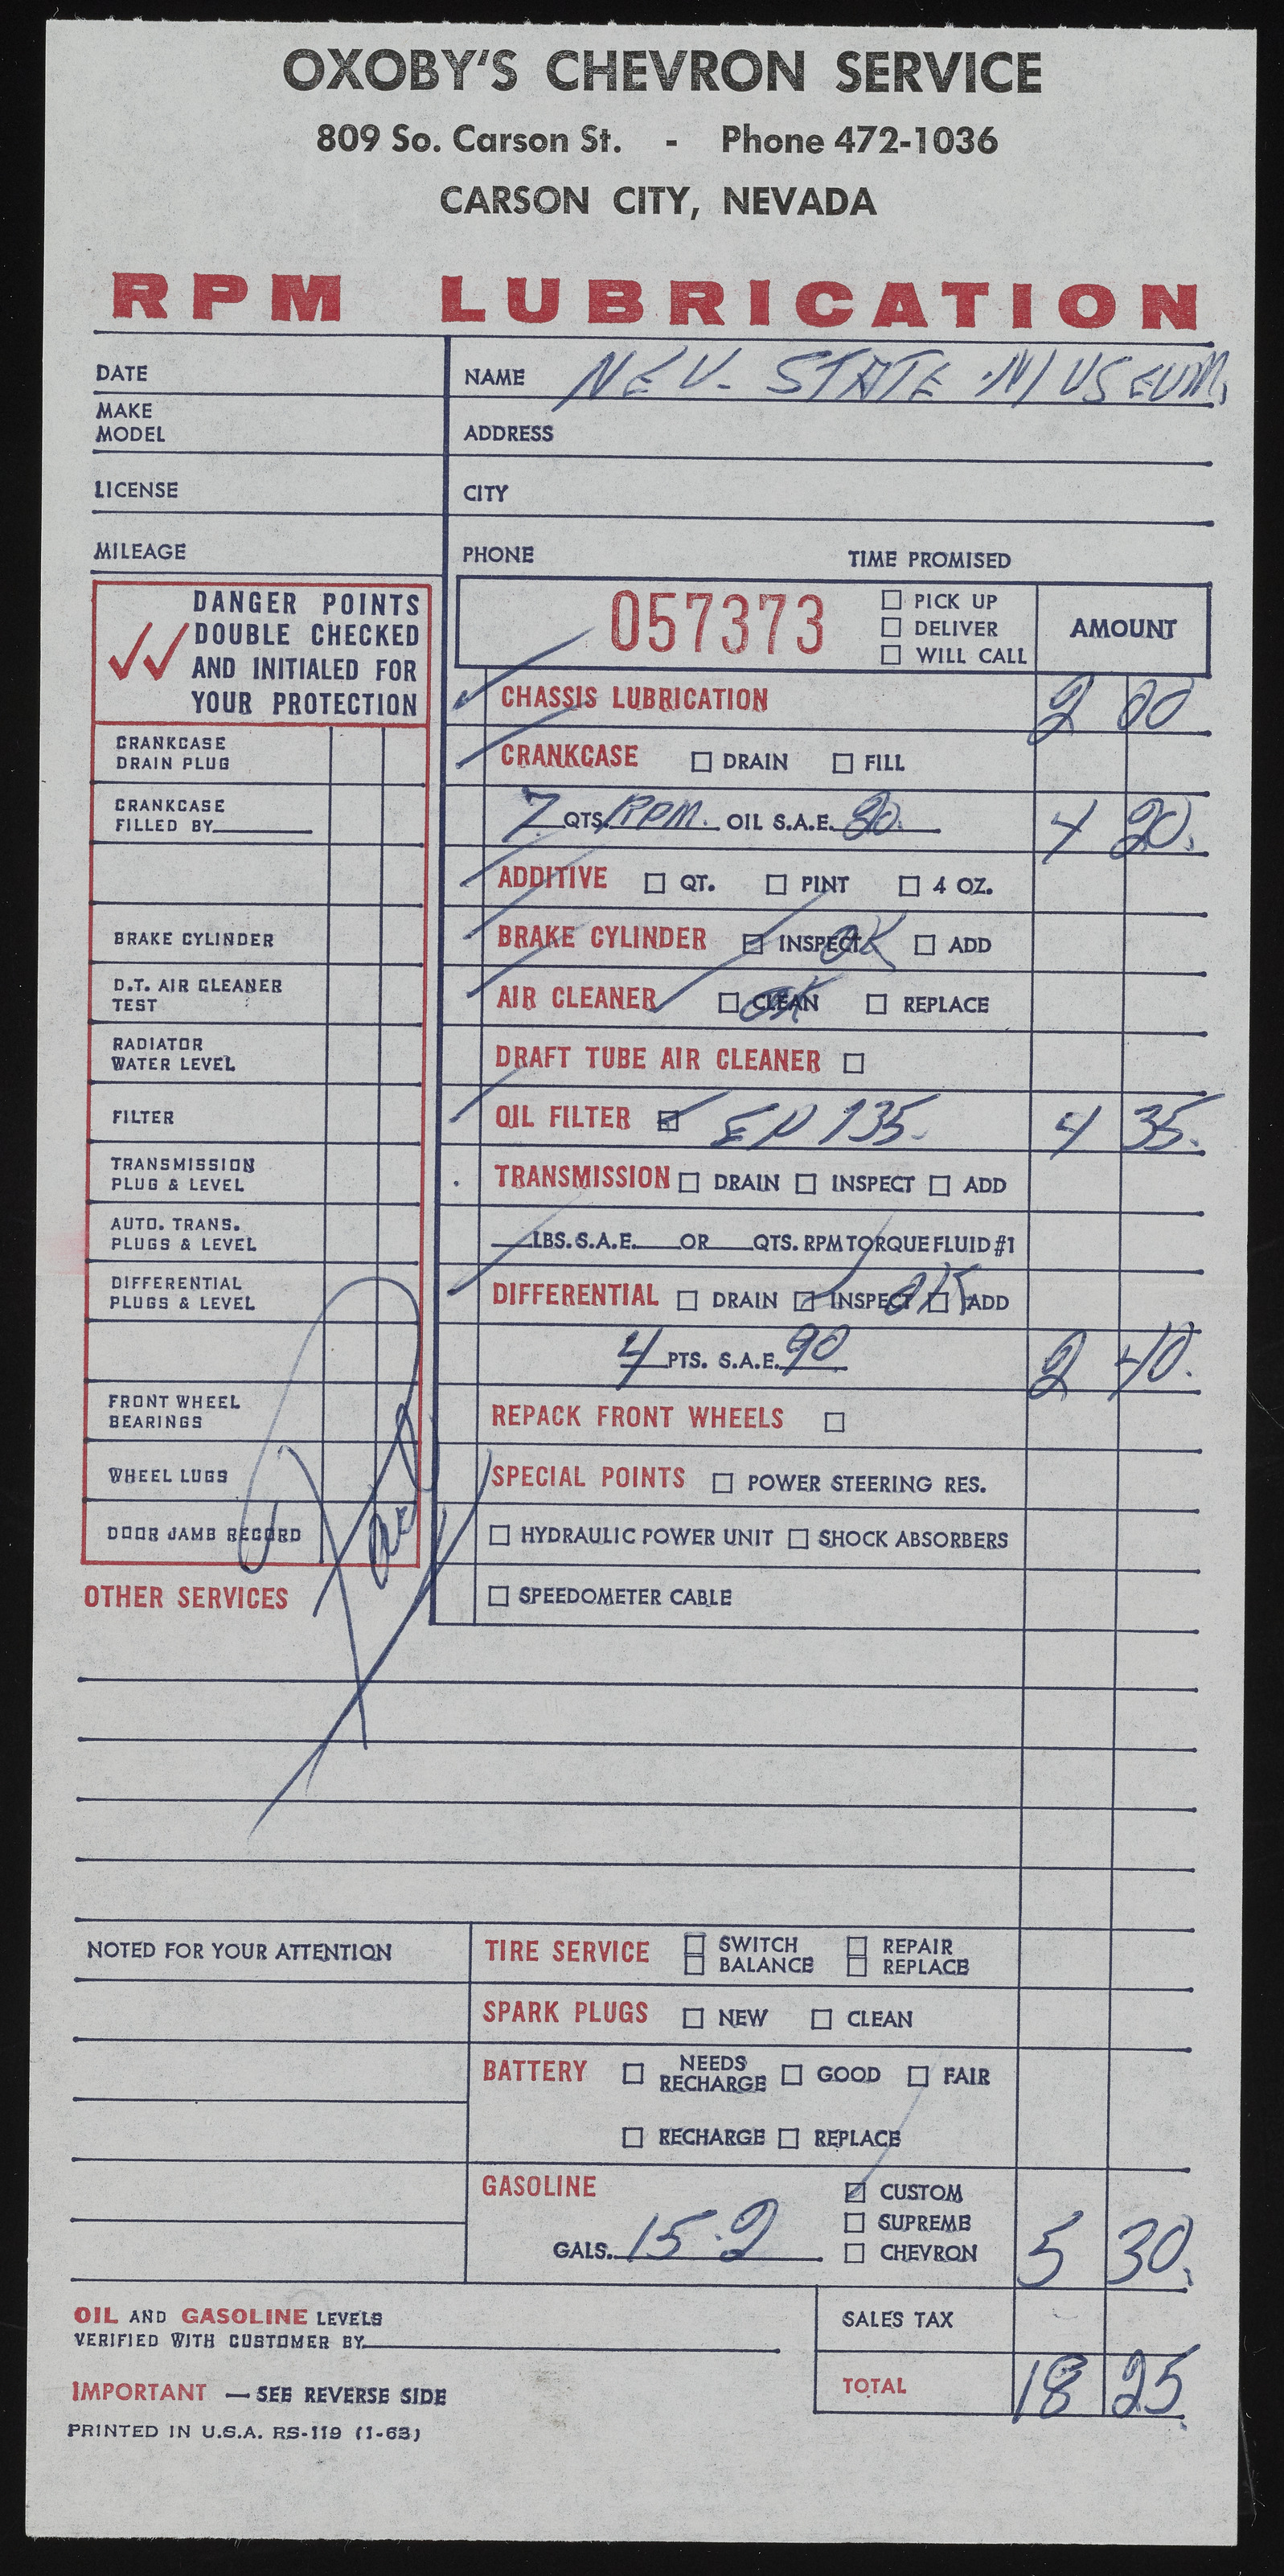 OXOBY'S CHEVRON SERVICE
809 So. Carson St. - Phone 472-1036
CARSON CITY, NEVADA
RPM LUBRICATION
DATE
NAME NEV. STATE MUSEUM.
MAKE
MODEL
ADDRESS
LICENSE
CITY
MILEAGE
PHONE TIME PROMISED
DANGER POINTS
DOUBLE CHECKED
AND INITIALED FOR
YOUR PROTECTION
057373
PICK UP
DELIVER
WILL CALL
AMOUNT
CHASSIS LUBRICATION 2 00
CRANKCASE
DRAIN PLUG
CRANKCASE DRAIN FILL
CRANKCASE
FILLED BY
7 QTS. RPM. OIL S.A.E. 4 20.
ADDITIVE QT. PINT 4 OZ.
BRAKE CYLINDER
BRAKE CYLINDER INSPECT OK ADD
D.T. AIR CLEANER
TEST
AIR CLEANER CLEAN OK REPLACE
RADIATOR
WATER LEVEL
DRAFT TUBE AIR CLEANER
FILTER
OIL FILTER EP 135. 4 35.
TRANSMISSION
PLUG & LEVEL
TRANSMISSION DRAIN INSPECT ADD
AUTO. TRANS.
PLUGS & LEVEL
LBS. S.A.E. OR QTS. RPM TORQUE FLUID #1
DIFFERENTIAL
PLUGS & LEVEL
DIFFERENTIAL DRAIN INSPECT OK ADD
4 PTS. S.A.E. 90 2 40.
FRONT WHEEL
BEARINGS
REPACK FRONT WHEELS
WHEEL LUGS
SPECIAL POINTS POWER STEERING RES.
DOOR JAMB RECORD
HYDRAULIC POWER UNIT SHOCK ABSORBERS
OTHER SERVICES
SPEEDOMETER CABLE
NOTED FOR YOUR ATTENTION
TIRE SERVICE SWITCH REPAIR
BALANCE REPLACE
SPARK PLUGS NEW CLEAN
BATTERY NEEDS RECHARGE GOOD FAIR
RECHARGE REPLACE
GASOLINE CUSTOM
SUPREME
GALS. 15.2 CHEVRON 5 30.
OIL AND GASOLINE LEVELS
VERIFIED WITH CUSTOMER BY
SALES TAX
TOTAL 18 25
IMPORTANT — SEE REVERSE SIDE
PRINTED IN U.S.A. RS-119 (1-63)